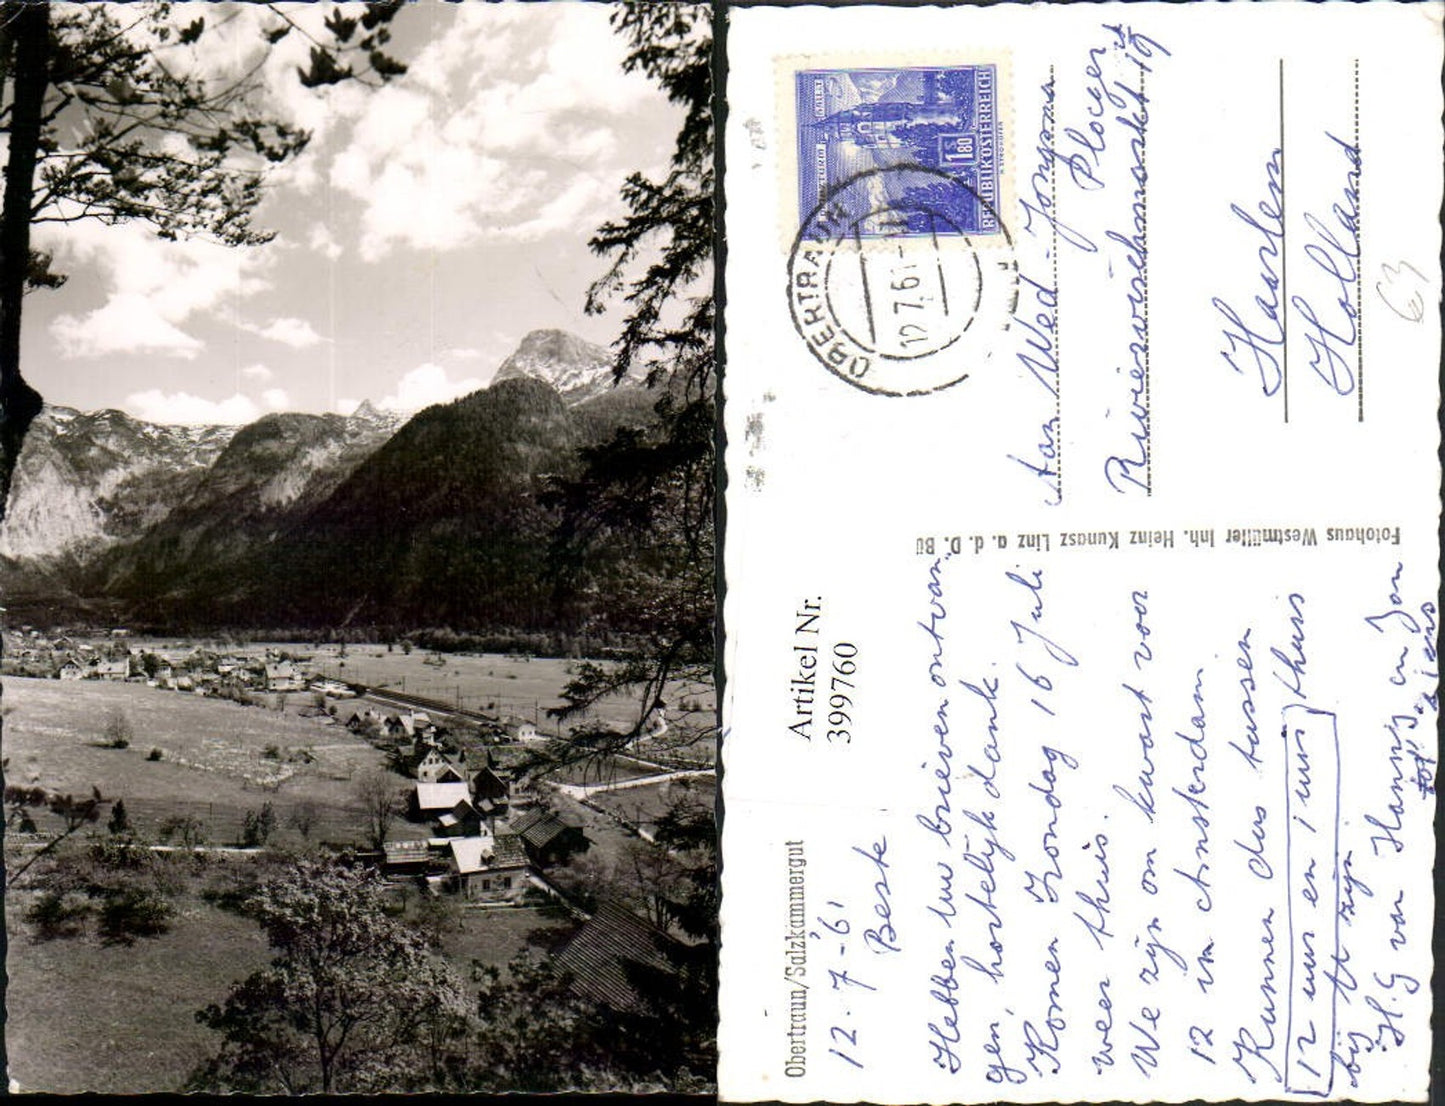 Obertraun/Salzkammergut
12-7-'61
Beste
Hebben uw brieven ontvan
gen, hartelijk dank.
Komen Zondag 16 Juli
weer thuis.
We zijn om kwart voor
12 in Amsterdam.
Kunnen dus tussen
12 uur en 1 uur thuis
bij zijn
H.G van Hannij en Jan
tot ziens
Artikel Nr.
399760
Fotohaus Westmüller Inh. Heinz Kunasz Linz a. d. D. Bü
REPUBLIK ÖSTERREICH
S 1.80
OBERTRAUN
12.7.61
Aan Wed Jongma
Ploeger
Rivierwischmarkt 19
Haarlem
Holland
63